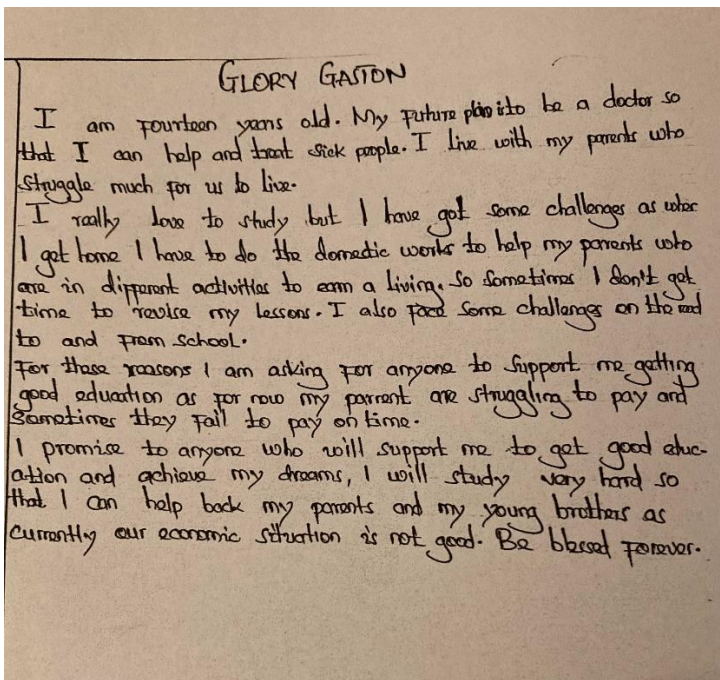 GLORY GASTON
I am fourteen years old. My future plan is to be a doctor so
that I can help and treat sick people. I live with my parents who
struggle much for us to live.
I really love to study but I have got some challenges as when
I get home I have to do the domestic works to help my parents who
are in different activities to earn a living. So sometimes I don't get
time to revise my lessons. I also face some challenges on the road
to and from school.
For these reasons I am asking for anyone to support me getting
good education as for now my parrent are struggling to pay and
sometimes they fail to pay on time.
I promise to anyone who will support me to get good educ-
ation and achieve my dreams, I will study very hard so
that I can help back my parents and my young brothers as
currently our economic situation is not good. Be blessed forever.